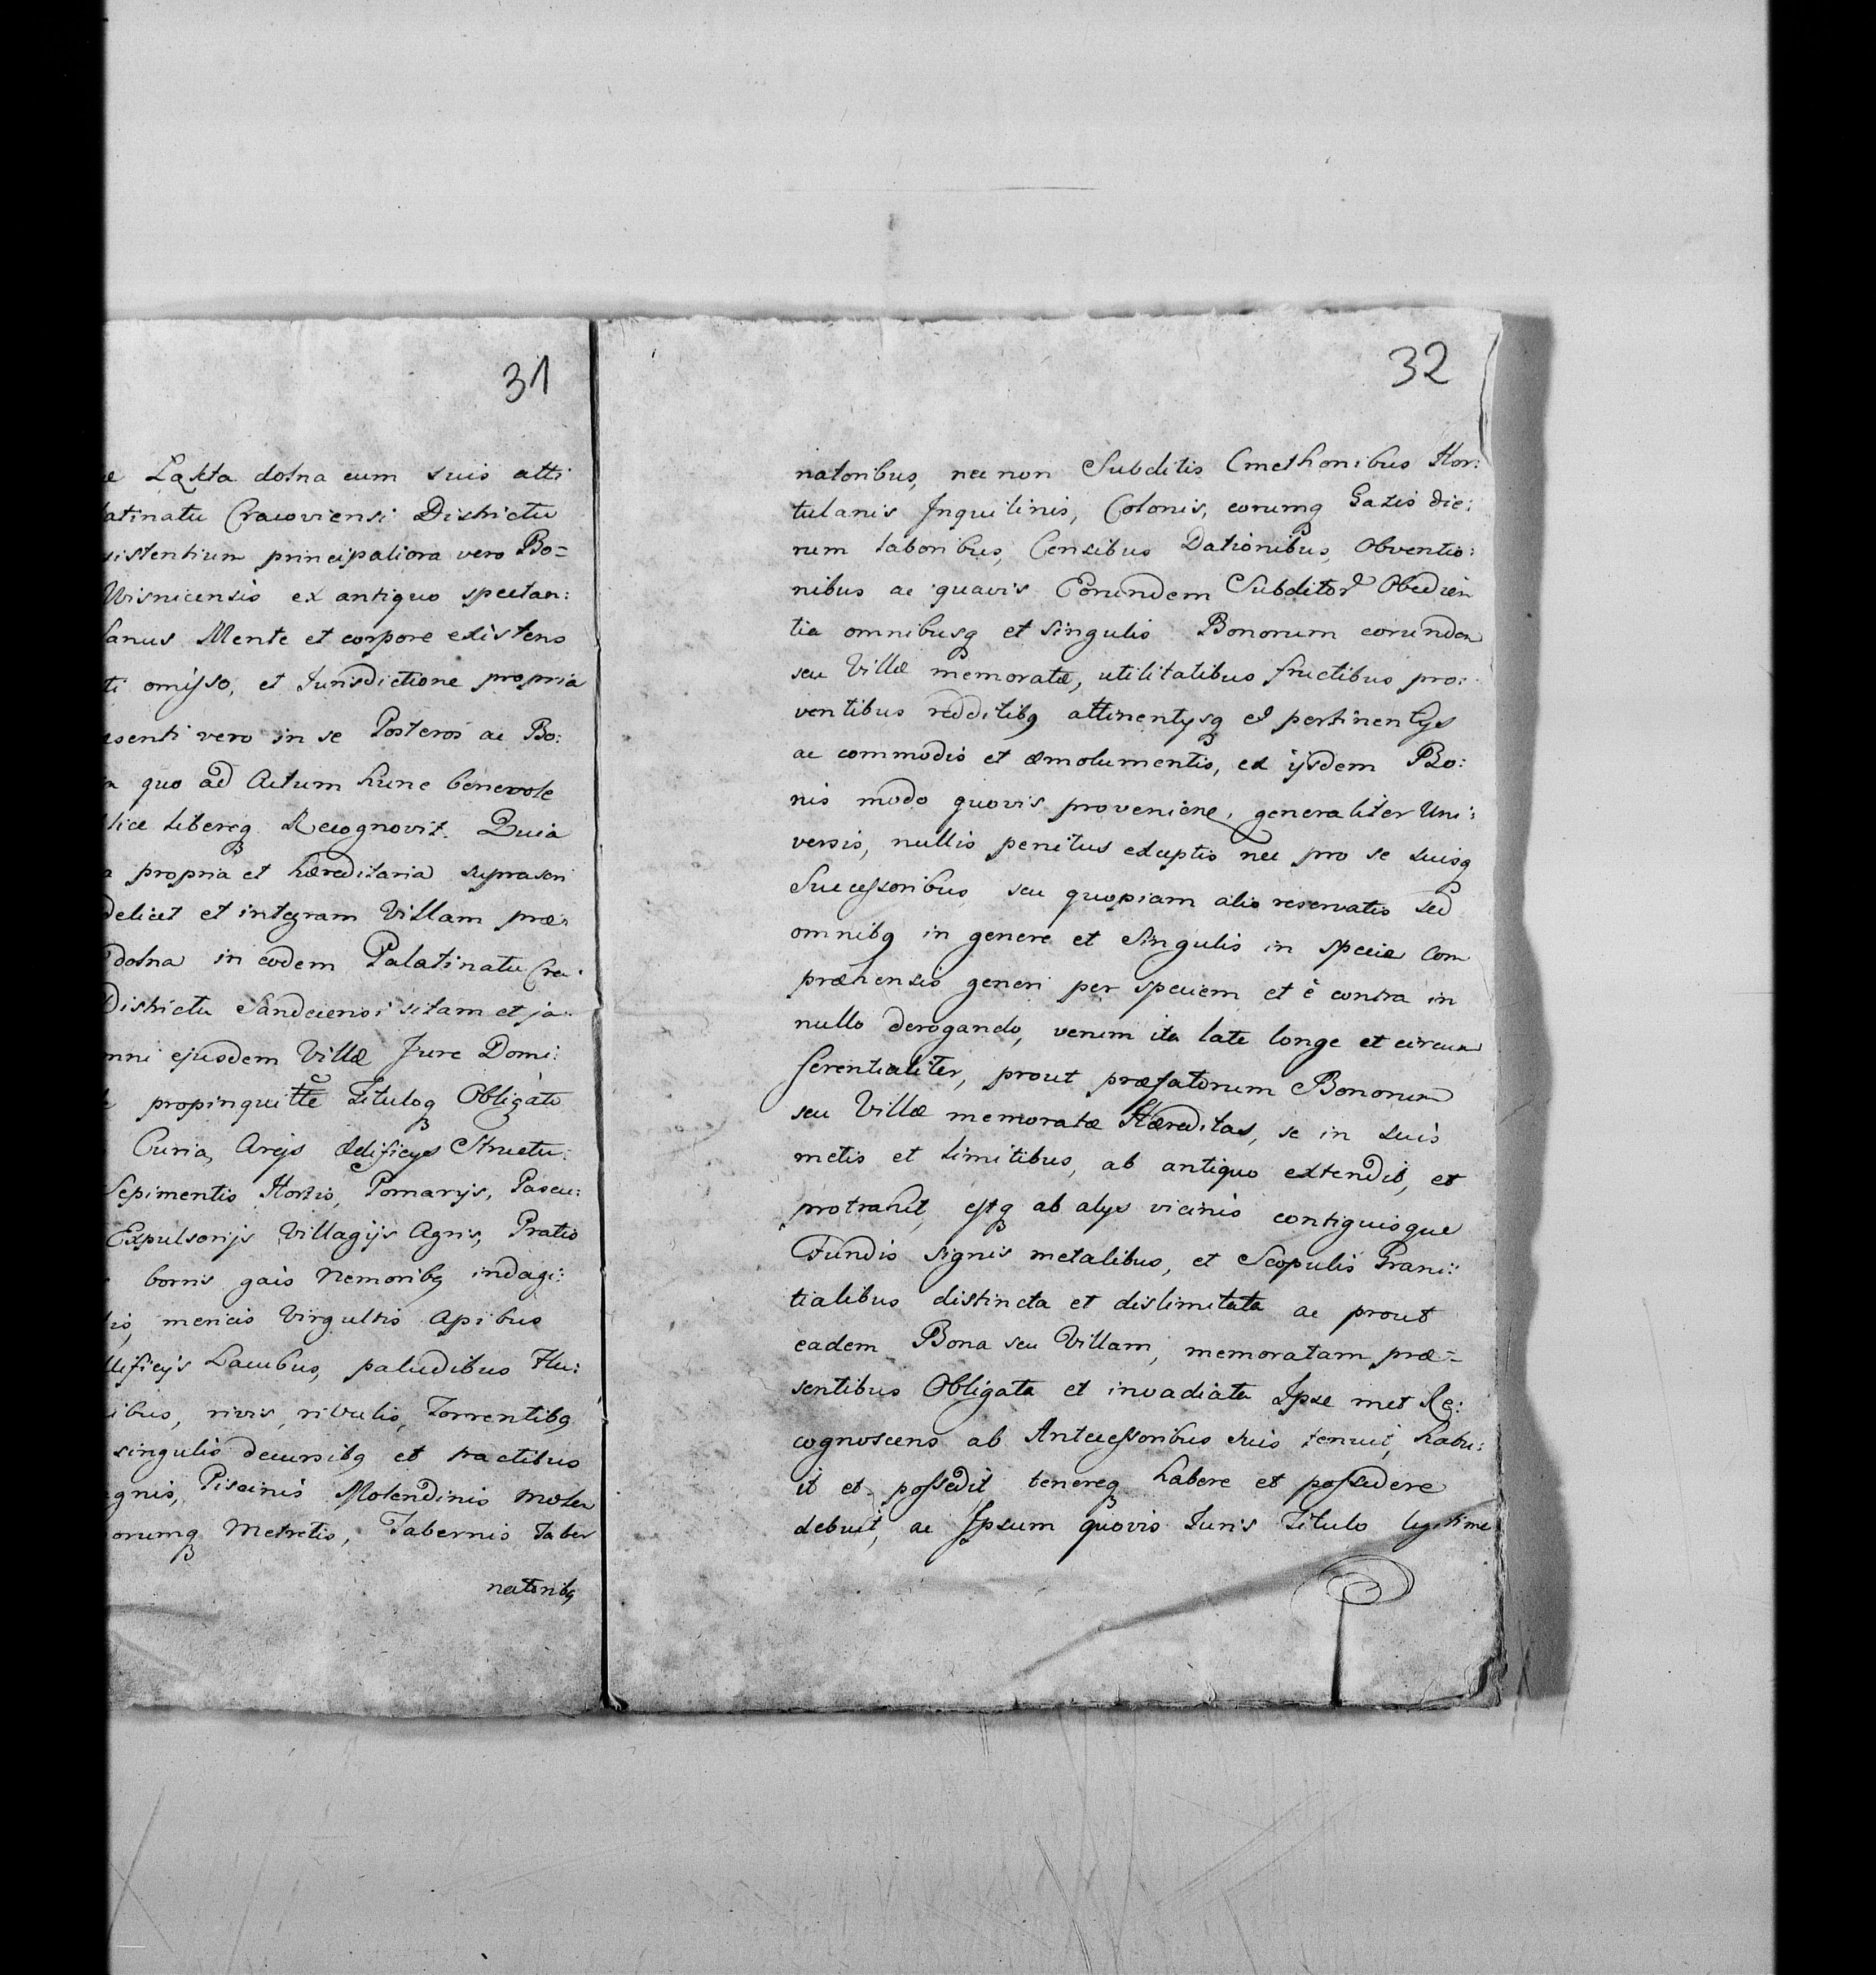 31
Łąkta dolna cum suis atti
atinatu Cracoviensi Districtu
sistentium principaliora vero Bo=
Wisnicensis ex antiquo spectan:
sanus Mente et corpore existens
ti omisso, et Jurisdictione propria
esenti vero in se Posteros ac Bo:
quo ad Actum hunc benevole
lice Libereq Recognovit. Quia
a propria et hæreditaria suprascri
delicet et integram Villam præ:
dolna in eodem Palatinatu Cra:
Districtu Sandecensi sitam et ja:
mni ejusdem Villæ Jure Domi:
propinquitte Tituloq Obligato
Curia, Areis Ædificijs Structu:
Sepimentis Hortis, Pomarijs, Pascu:
Expulsorijs Villagijs Agris, Pratis
borris gais Nemoribq indagi:
is, mericis Virgultis Apibus
llificijs Lacubus, paludibus Flu:
ibus, rivis, rivulis, Torrentibq
singulis decursibq et tractibus
gnis, Piscinis Molendinis Molen
orumq Metretis, Tabernis Taber
natoribq
32
natoribus, nec non Subditis Cmethonibus Hor:
tulanis Inquilinis, Colonis, eorumq Gazis die:
rum laboribus, Censibus Dationibus, Obventio:
nibus ac quavis Eorundem Subditor Obedien
tia omnibusq et singulis Bonorum eorundem
seu Villæ memoratæ, utilitatibus fructibus pro:
ventibus redditibq attinentijsq et pertinentijs
ac commodis et æmolumentis, ex ijsdem Bo:
nis modo quovis proveniene, generaliter Uni:
versis, nullis penitus exceptis nec pro se suisq
Successoribus seu quopiam alio reservatis sed
omnibq in genere et singulis in specie com
præhensis generi per speciem et è contra in
nullo derogando, verum ita late longe et circum
ferentialiter, prout præfatorum Bonorum
seu Villæ memoratæ Hæreditas, se in suis
metis et Limitibus, ab antiquo extendit, et
protrahit, estq ab alijs vicinis contiguisque
Fundis signis metalibus, et Scopulis Grani:
tialibus distincta et dislimitata ac prout
eadem Bona seu Villam, memoratam præ=
sentibus Obligata et invadiata Ipse met Re:
cognoscens ab Antecessoribus suis tenuit, habu:
it et possedit tenereq habere et possidere
debuit, ac Ipsum quovis Juris Titulo legitime